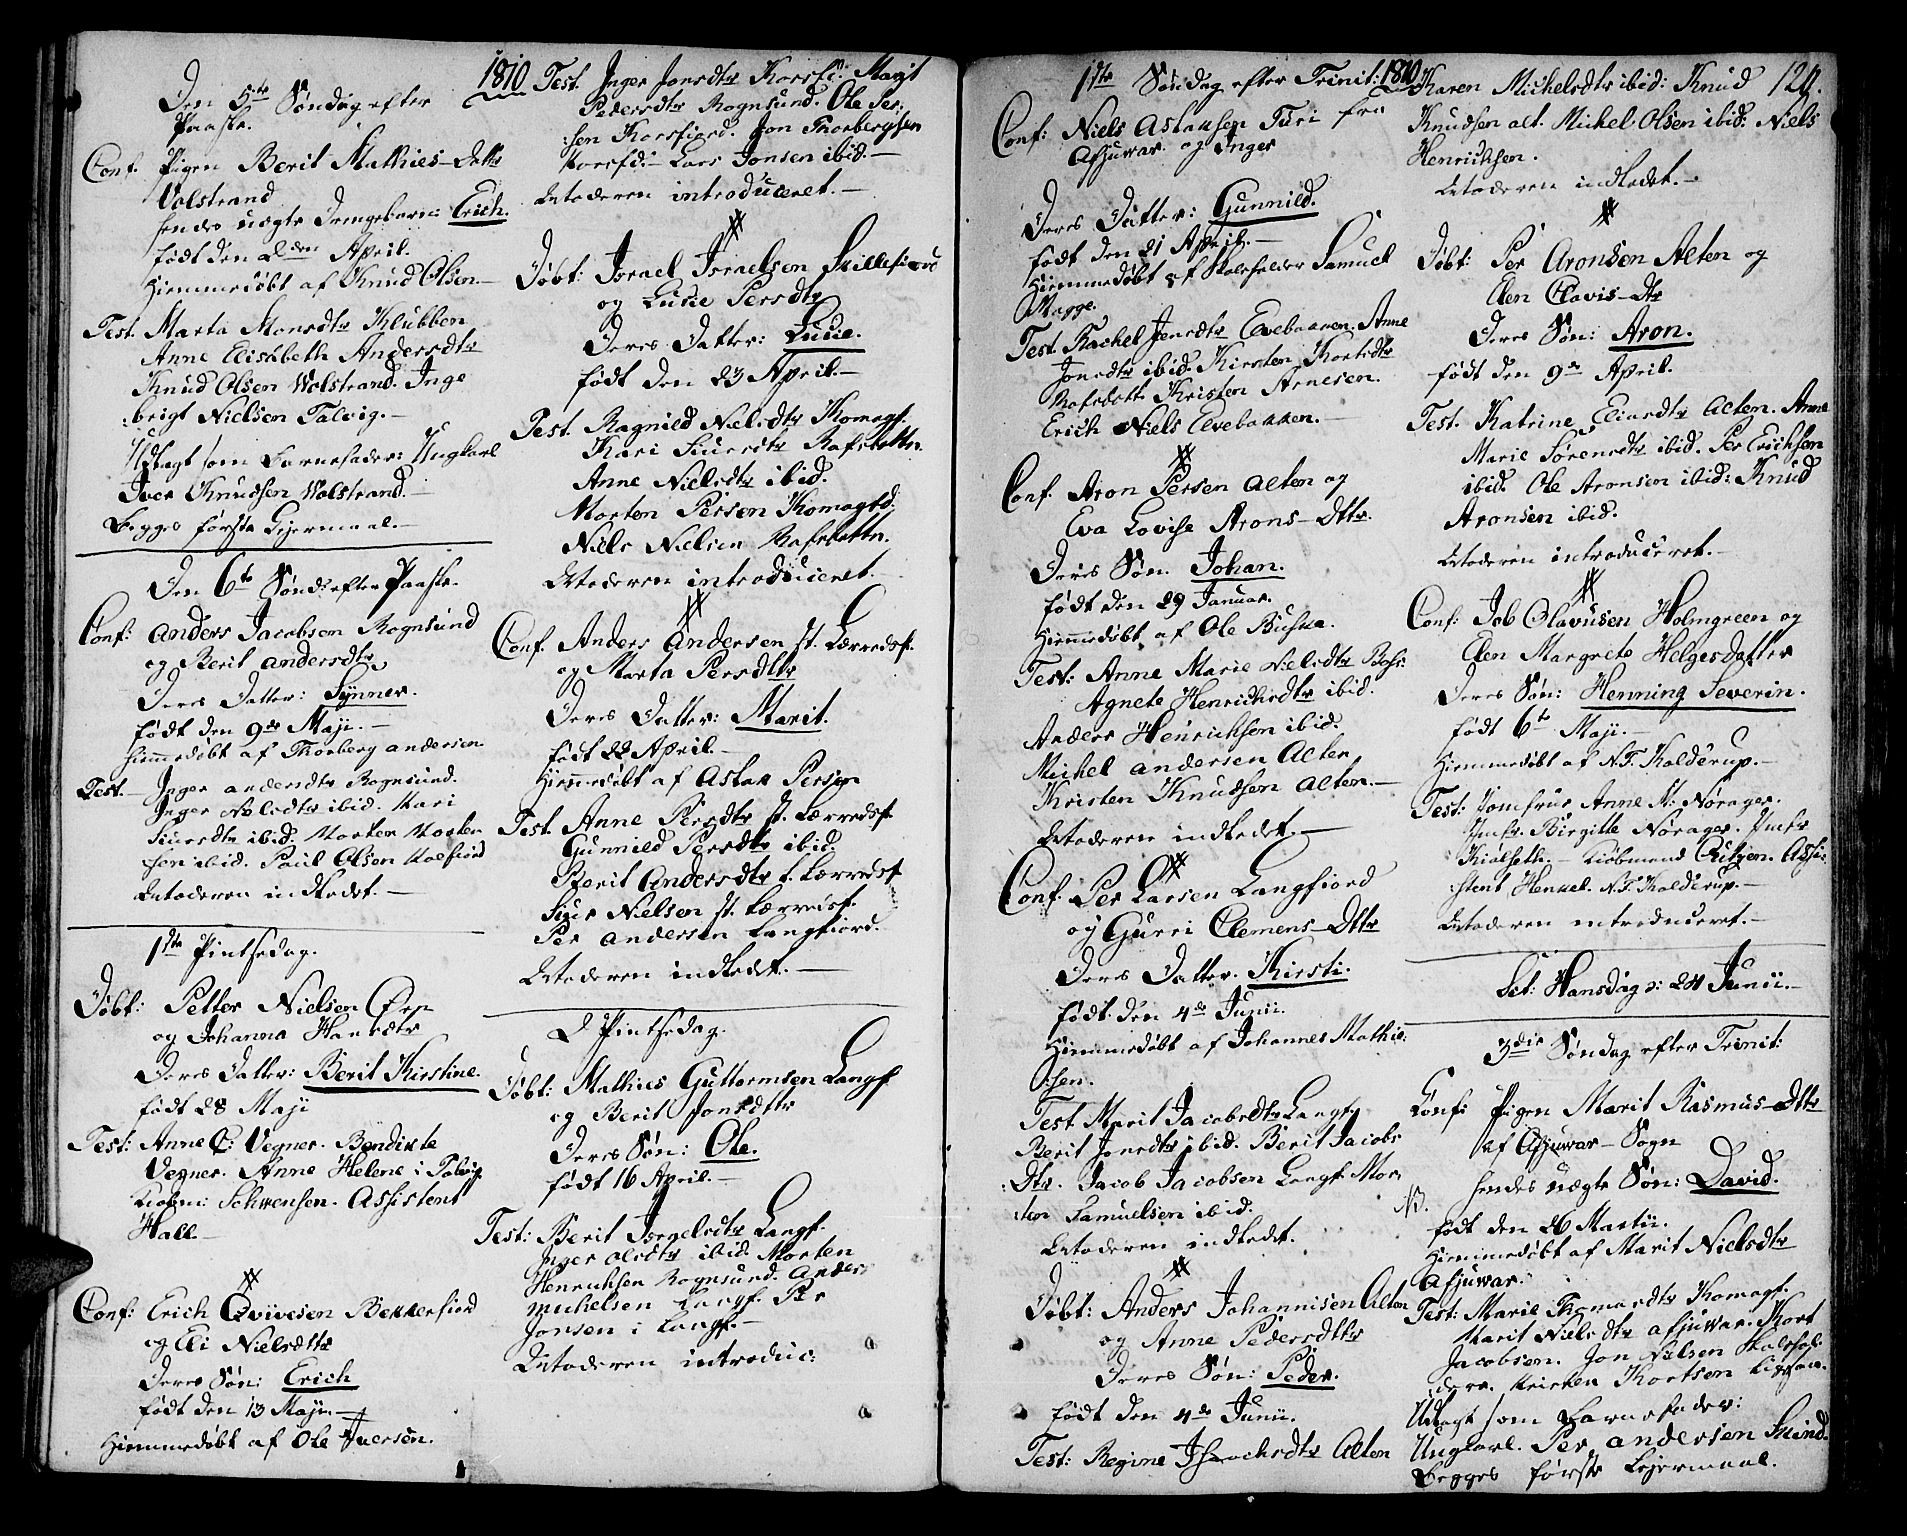 1810
Den 5te Søndag efter
Paaske.
Conf. Pigen Berit Mathies-Datter
Volstrand
hendes uægte Drengebarn: Erich.
født den 2den April.
Hiemmedøbt af Knud Olsen.
Test. Marta Monsdtr Klubben
Anne Elisabeth Andersdtr
Knud Olsen Wolstrand. Inge
:brigt Nielsen Talvig.-
Udlagt som Barnefader: Ungkarl
Iver Knudsen Wolstrand.-
Begges første Leiermaal.-
Den 6te Sønd: efter Paaske.
Conf: Anders Jacobsen Rognsund
og Berit Andersdtr
Deres Datter: Synner.
født den 9de Maji.-
Hiemmedøbt af Thorberg Andersen
Test.- Inger Andersdtr Rognsund.
Inger Nielsdtr ibid. Kari
Siuersdtr ibid. Morten Morten
sen ibid. Poul Olsen Korsfiord
Betoderen indledet.-
1ste Pintsedag.
Døbt: Petter Nielsen Øen
og Johanna Hansdtr
Deres Datter: Berit Kirstine.
født 28 Maji
Test: Anne C: Wegner. Bendikte
Wegner. Anne Helene i Talvig
Kiøbm: Schwensen. Assistent
Hall.-
Conf: Erich Qviivesen Bekkerfiord
og Eli Nielsdttr
Deres Søn: Erich
født den 13 Maji.-
Hiemmedøbt af Ole Iversen.
Test. Inger Jonsdtr Korsfi: Marit
Pedersdtr Rognsund. Ole Per:
:sen Korsfiord. Jon Thorbergsen
Korsfd:- Lars Jonsen ibid.-
Betoderen introduceret.-
Døbt: Israel Israelsen Skillefiord
og Lucie Persdtr
Deres Datter: Lucie.
født den 23 April.-
Test. Ragnild Nielsdtr Komagf.
Kari Siuersdtr Rafsbottn.
Anne Nielsdtr ibid.
Morten Persen Komagfd:
Niels Nielsen Rafsbottn.
Betoderen introduceret.
Conf. Anders Andersen St. Lærredsf.
og Marta Persdttr
Deres Datter: Marit.
født 22 April.-
Hiemmedøbt af Aslak Persen
Test. Anne Persdtr St. Lærredsf.
Gunnild Persdtr ibid.
Berit Andersdtr l. Lærredsf
Siur Nielsen St. Lærredsf.
Per Andersen Langfiord.
Betoderen indledet.-
2 Pintsedag.
Døbt: Mathies Guttormsen Langf
og Berit Jonsdttr
Deres Søn: Ole.
født 16 April.-
Test: Berit Israelsdtr Langf.
Inger Olsdtr ibid. Morten
Henrichsen Rognsund. Anders
Michelsen Langf. Per
Jonsen i Langf.-
Betoderen introduc:
1810
1ste Søndag efter Trinit:
Conf: Niels Aslaksen Turi fra
Afjuwar og Inger
Deres Datter: Gunnild.
født den 21 April.-
Hiemmedøbt af Skoleholder Samuel
Magge.
Test. Rachel Jensdtr Elvebakken. Anne
Jonsdtr ibid. Kirsten Kortsdtr
Rafsbottn Kristen Arnesen.
Erich Niels Elvebakken.-
Conf. Aron Persen Alten og
Eva Lovise Arons-Dttr.
Deres Søn. Johan.
født den 29 Januar.
Hiemmedøbt af Ole Buska.
Test: Anne Marie Nielsdtr Bossi
Agnete Henrichsdtr ibid.
Anders Henrichsen ibid.
Michel Andersen Alten
Kristen Knudsen Alten.-
Betoderen indledet.-
Conf. Per Larsen Langfiord
og Gurri Clemens-Dttr
Deres Datter. Kirsti.
født den 4de Junii.
Hiemmedøbt af Johannes Mathie:
:sen.
Test Marit Jacobsdtr Langf.
Berit Jonsdtr ibid. Berit Jacobs
:Dtr. Jacob Jacobsen Langf. Mor:
:ten Samuelsen ibid.
Betoderen indledet.
Døbt: Anders Johannisen Alten
og Anne Pedersdttr
Deres Søn: Peder.
født den 4de Junii.
Test: Regine Ishachsdtr Alten
124.
Karen Michelsdtr ibid: Knud
Knudsen alt. Michel Olsen ibid. Niels
Henrichsen.
Betoderen indledet.-
Døbt: Per Aronsen Alten og
Elen Clavis-Dtr
Deres Søn: Aron.
født den 9de April.
Test. Katrine Eliasdtr Alten. Anne
Marie Sørensdtr ibid. Per Erichsen
ibid. Ole Aronsen ibid: Knud
Aronsen ibid.
Betoderen introduceret.-
Conf: Job Olavusen Holmgreen og
Elen Margrete Helgesdatter
Deres Søn: Henning Severin.
født 6te Maji.-
Hiemmedøbt af N.F. Kolderup.-
Test: Jomfrue Anne M: Nørager.
Jmfr. Birgitte Nørager. Jmfr
Kiølseth.- Kiøbmand Buszen. Assi:
:stent Henkel. N.F. Kolderup.-
Betoderen introduceret.-
Sct: Hansdag d: 24 Junii.-
3die Søndag efter Trinit:
Conf: Pigen Marit Rasmus-Dttr
af Afjuwar-Sogn
hendes uægte Søn: David.
N.
født den 26 Martii.
Hiemmedøbt af Marit Nielsdtr
Afjuwar.
Test: Marie Thomasdtr Komagf.
Marit Nielsdtr Afjuwar. Kort
Jacobsen. Jon Nielsen Skolehol:
:dere. Kristen Kortsen
Udlagt som Barnefader:
Ungkarl. Per Andersen
Begges første Leiermaal.